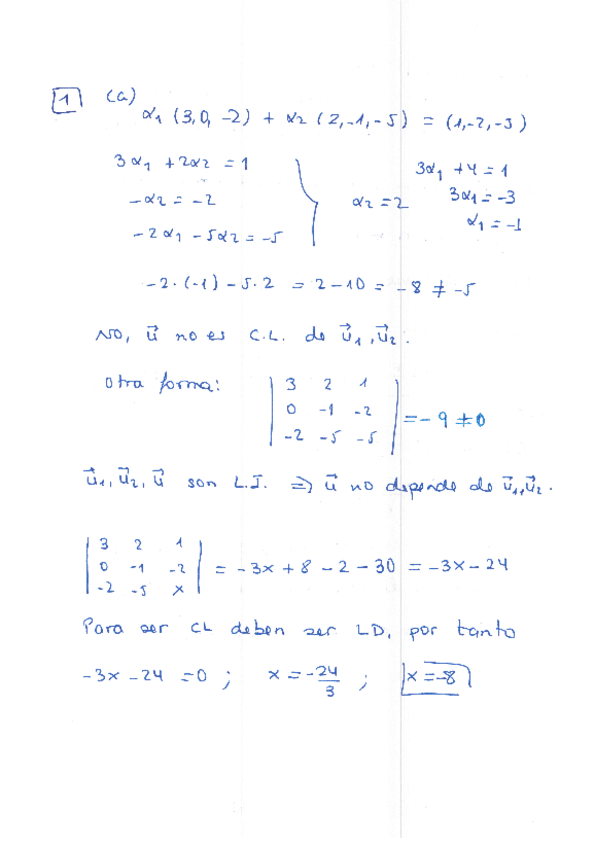 1 (a)
α1 (3,0,-2) + α2 (2,-1,-5) = (1,-2,-5)
3α1 + 2α2 = 1
-α2 = -2
-2α1 - 5α2 = -5
α2 = 2
3α1 + 4 = 1
3α1 = -3
α1 = -1
-2·(-1) - 5·2 = 2 - 10 = -8 ≠ -5
NO, u⃗ no es C.L. de u⃗1, u⃗2.
Otra forma:
| 3 2 1 |
| 0 -1 -2 | = -9 ≠ 0
| -2 -5 -5 |
u⃗1, u⃗2, u⃗ son L.I. ⇒ u⃗ no depende de u⃗1, u⃗2.
| 3 2 1 |
| 0 -1 -2 | = -3x + 8 - 2 - 30 = -3x - 24
| -2 -5 x |
Para ser CL deben ser LD, por tanto
-3x - 24 = 0 ; x = -24/3 ; x = -8